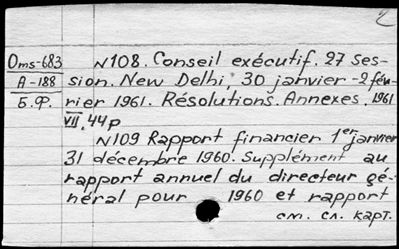 2
Oms-683 N108. Conseil exécutif. 27 Ses-
A-188 sion. New Delhi, 30 janvier -2 fév-
Б.Ф. rier 1961. Résolutions. Annexes. 1961
VII, 44p
N109 Rapport financier 1er janvier
31 décembre 1960. Supplément au
rapport annuel du directeur gé-
néral pour 1960 et rapport
см. сл. карт.